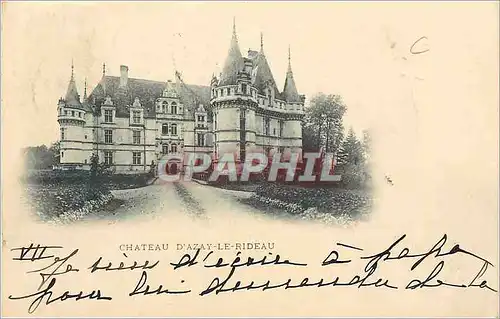 C
CPAPHIL
CHATEAU D'AZAY-LE-RIDEAU
VII Je viens d'écrire à papa
pour lui demander de la